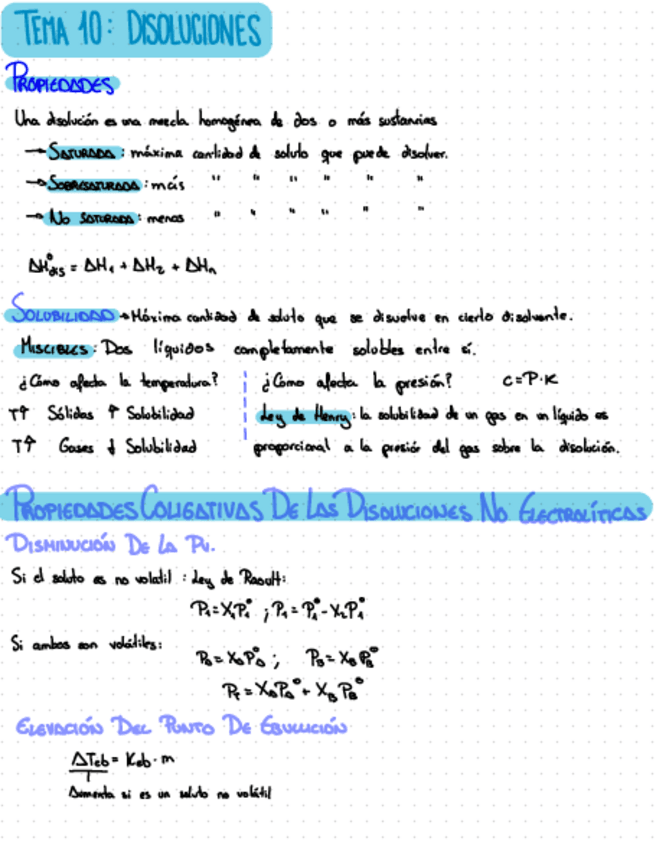 TEMA 10: DISOLUCIONES
PROPIEDADES
Una disolución es una mezcla homogénea de dos o más sustancias
→ SATURADA: máxima cantidad de soluto que puede disolver.
→ SOBRESATURADA: más " " " " " "
→ NO SATURADA: menos " " " " " "
ΔH°dis = ΔH₁ + ΔH₂ + ΔHn
SOLUBILIDAD → Máxima cantidad de soluto que se disuelve en cierto disolvente.
MISCIBLES: Dos líquidos completamente solubles entre sí.
¿Cómo afecta la temperatura?
T↑ Sólidos ↑ Solubilidad
T↑ Gases ↓ Solubilidad
¿Cómo afecta la presión? C=P·K
Ley de Henry: la solubilidad de un gas en un líquido es
proporcional a la presión del gas sobre la disolución.
PROPIEDADES COLIGATIVAS DE LAS DISOLUCIONES NO ELECTROLÍTICAS
DISMINUCIÓN DE LA PV.
Si el soluto es no volatil: Ley de Raoult:
P₁=X₁P₁° ; P₁=P₁°-X₂P₁°
Si ambos son volátiles:
PA=XAPA° ; PB=XBPB°
PT=XAPA°+XBPB°
ELEVACIÓN DEL PUNTO DE EBULLICIÓN
ΔTeb = Keb·m
Aumenta si es un soluto no volátil